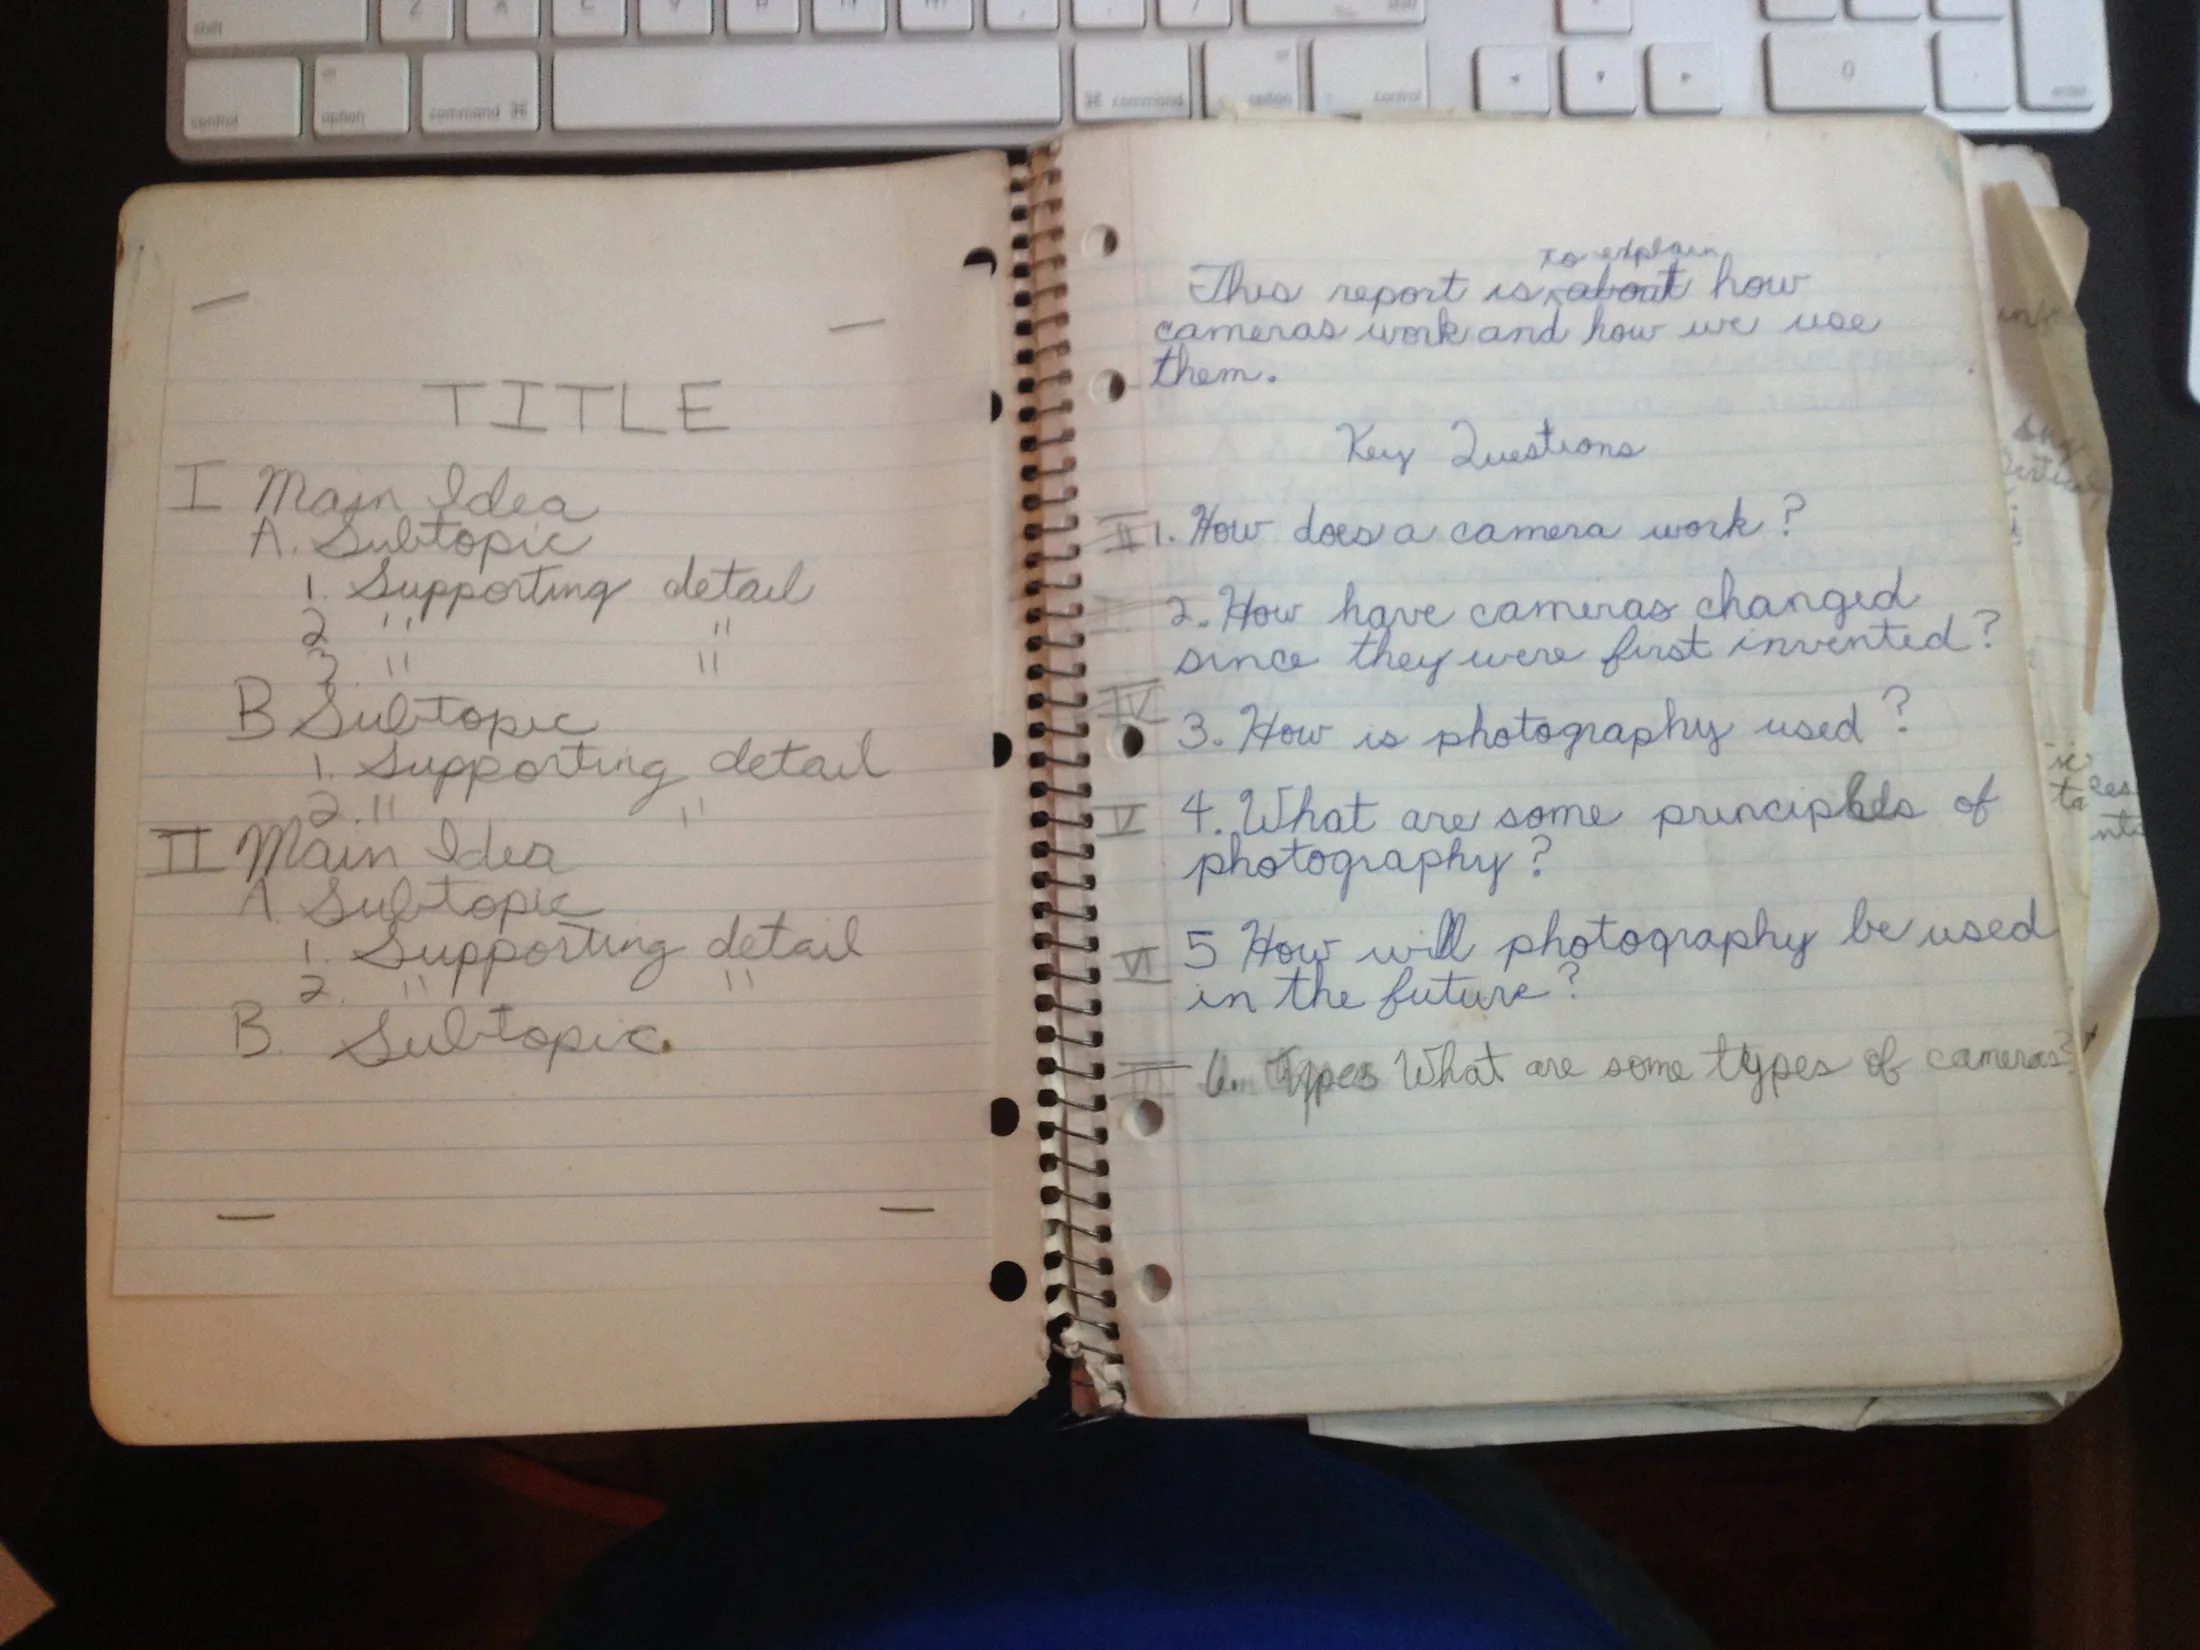 shift
control
option
command ⌘
⌘ command
option
control
0
enter
TITLE
I Main Idea
A. Subtopic
1. Supporting detail
2 " "
3. " "
B Subtopic
1. Supporting detail
2. " "
II Main Idea
A Subtopic
1. Supporting detail
2. " "
B. Subtopic.
to explain
This report is about how
cameras work and how we use
them.
Key Questions
II 1. How does a camera work?
2. How have cameras changed
since they were first invented?
IV
3. How is photography used?
V 4. What are some principles of
photography?
VI 5 How will photography be used
in the future?
III 6. Types What are some types of cameras?